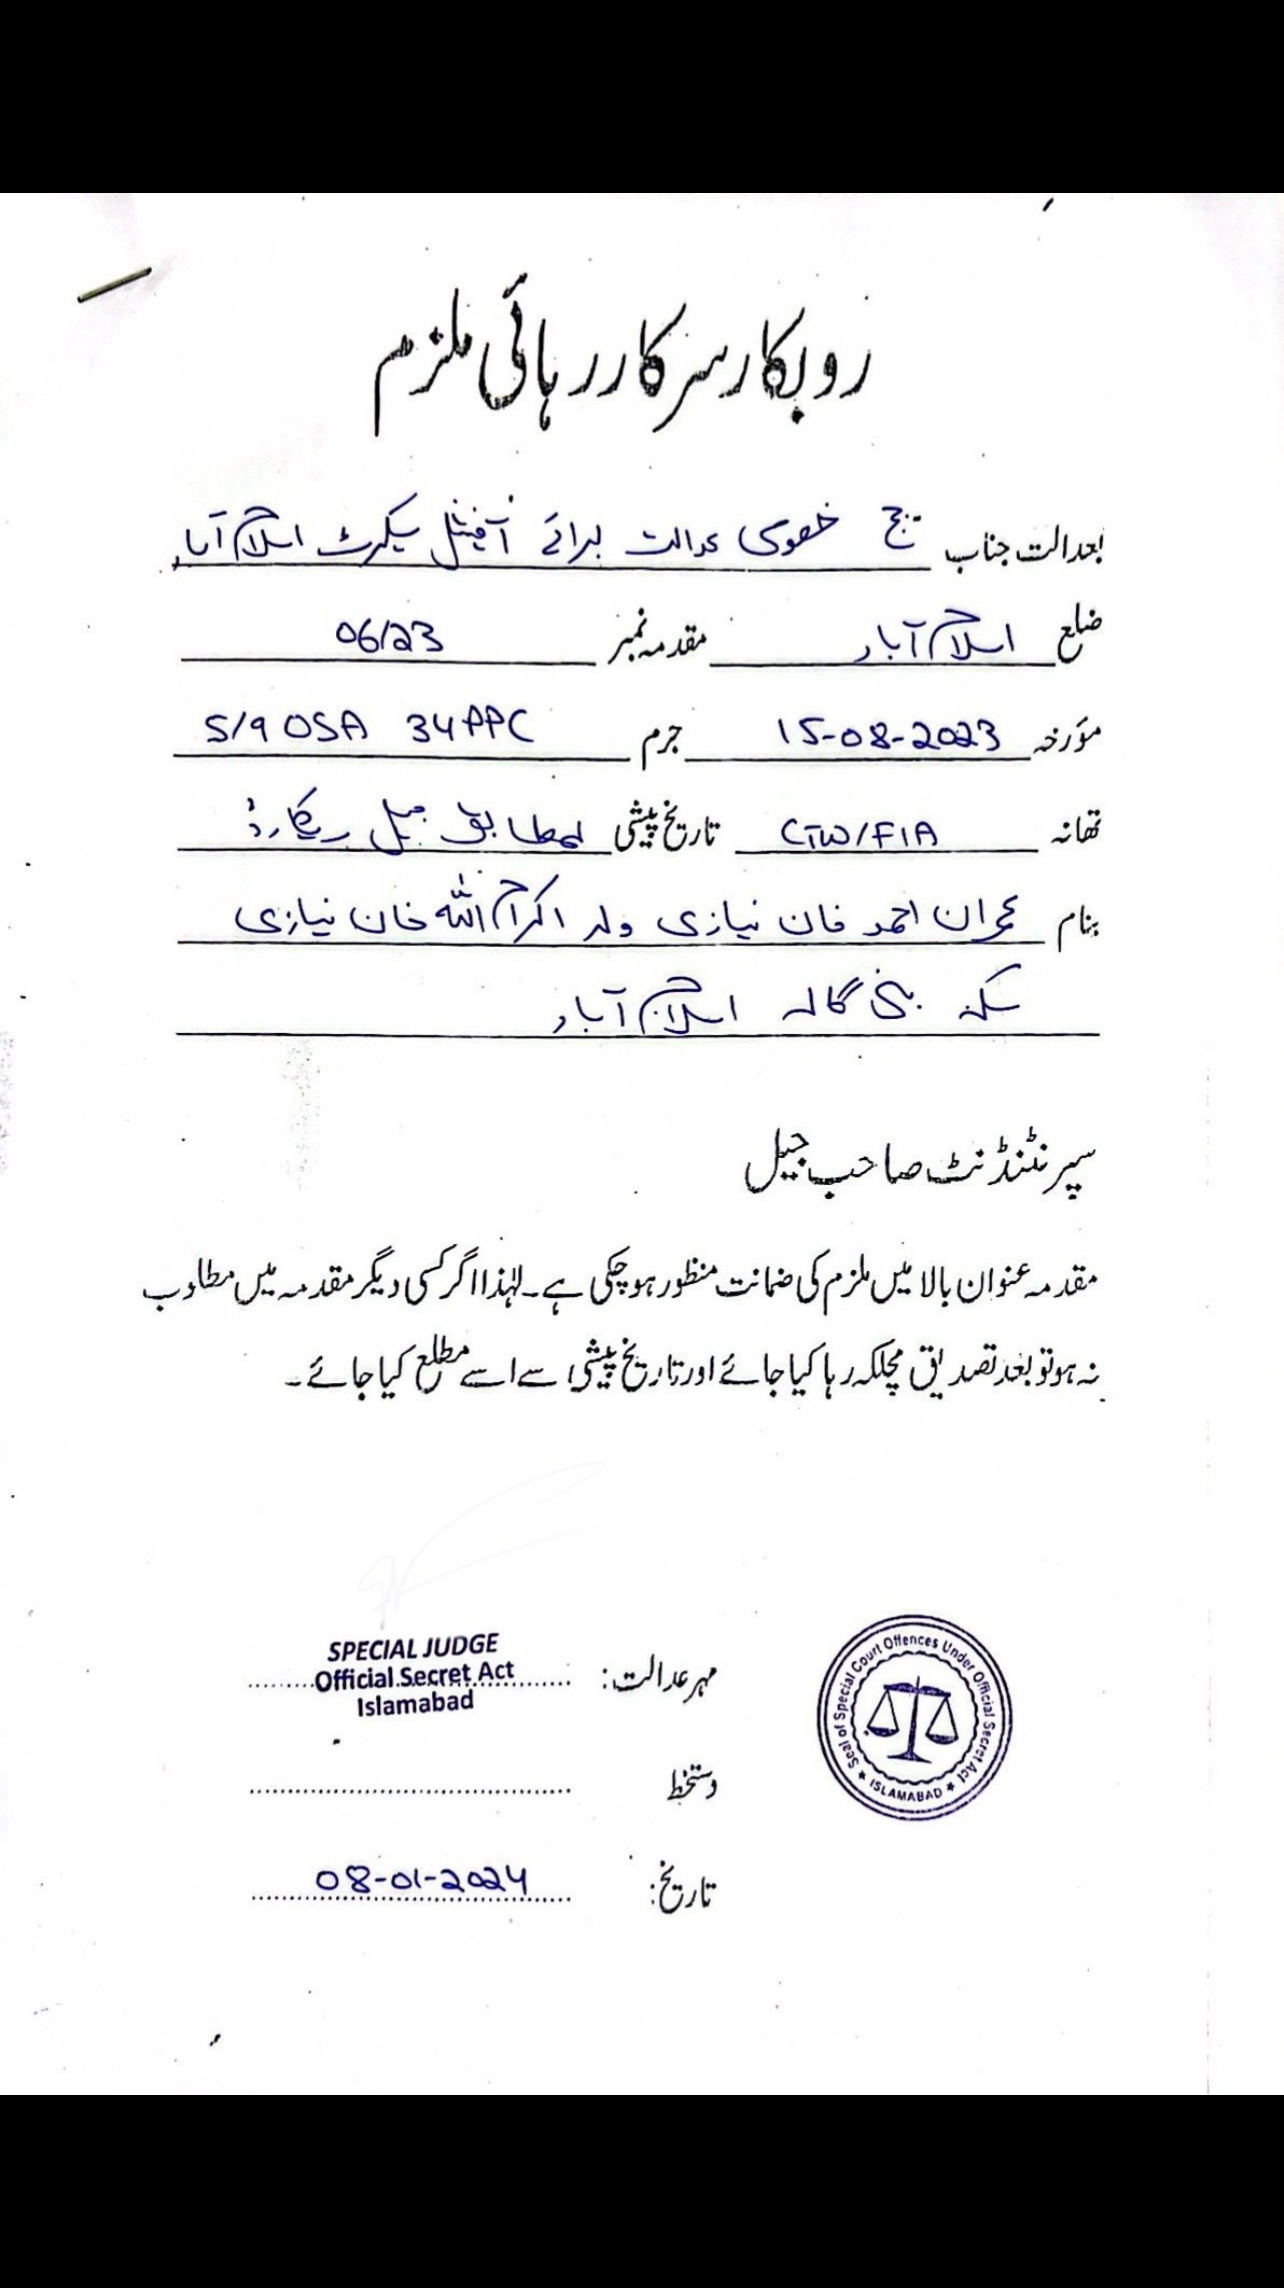 روبکار سرکار رہائی ملزم
بعدالت جناب جج خصوصی عدالت برائے آفیشل سیکرٹ اسلام آباد
ضلع اسلام آباد مقدمہ نمبر 06/23
مؤرخہ 15-08-2023 جرم 5/9 OSA 34 PPC
تھانہ CTW/FIA تاریخ پیشی بمطابق جیل ریکارڈ
بنام عمران احمد خان نیازی ولد اکرام اللہ خان نیازی
سکنہ بنی گالہ اسلام آباد
سپرنٹنڈنٹ صاحب جیل
مقدمہ عنوان بالا میں ملزم کی ضمانت منظور ہوچکی ہے۔ لہٰذا اگر کسی دیگر مقدمہ میں مطلوب
نہ ہو تو بعد تصدیق مچلکہ رہا کیا جائے اور تاریخ پیشی سے اسے مطلع کیا جائے۔
SPECIAL JUDGE
مہر عدالت: Official Secret Act
Islamabad
Seal of Special Court Offences Under Official Secret Act
ISLAMABAD
دستخط
تاریخ: 08-01-2024